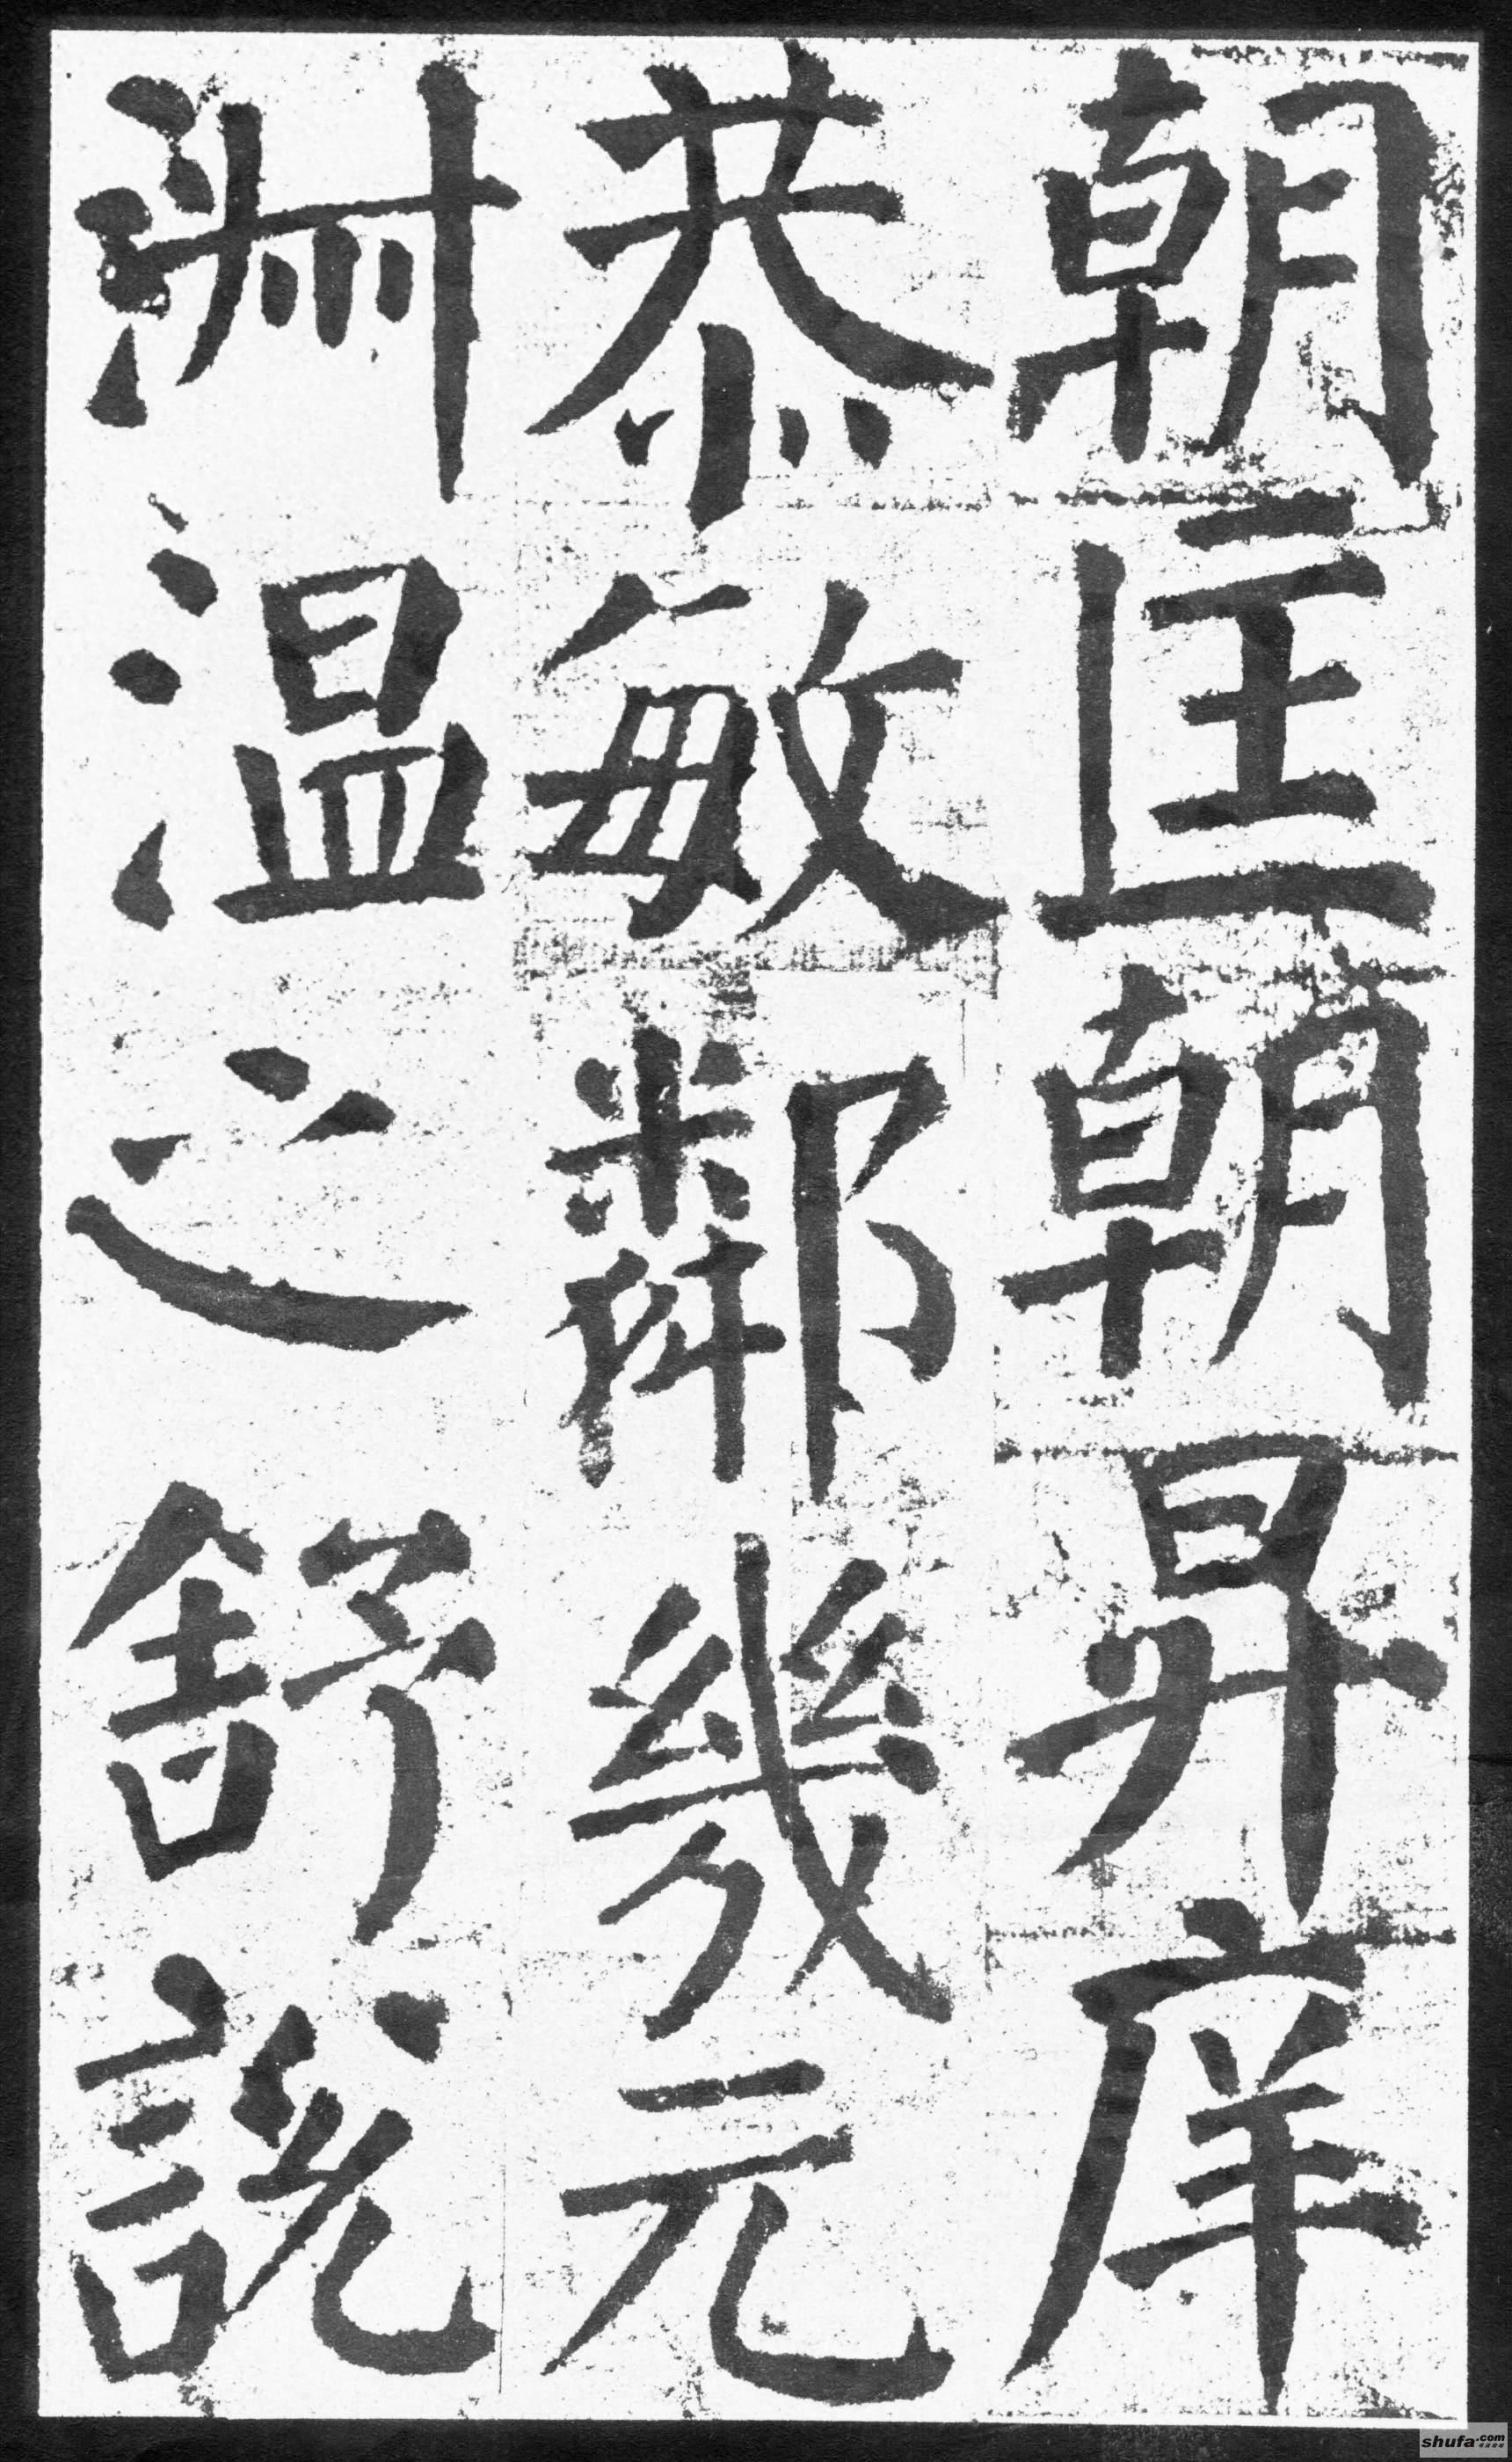 朝匡朝昇庠
恭敏鄰幾元
淵温之舒說
shufa.com